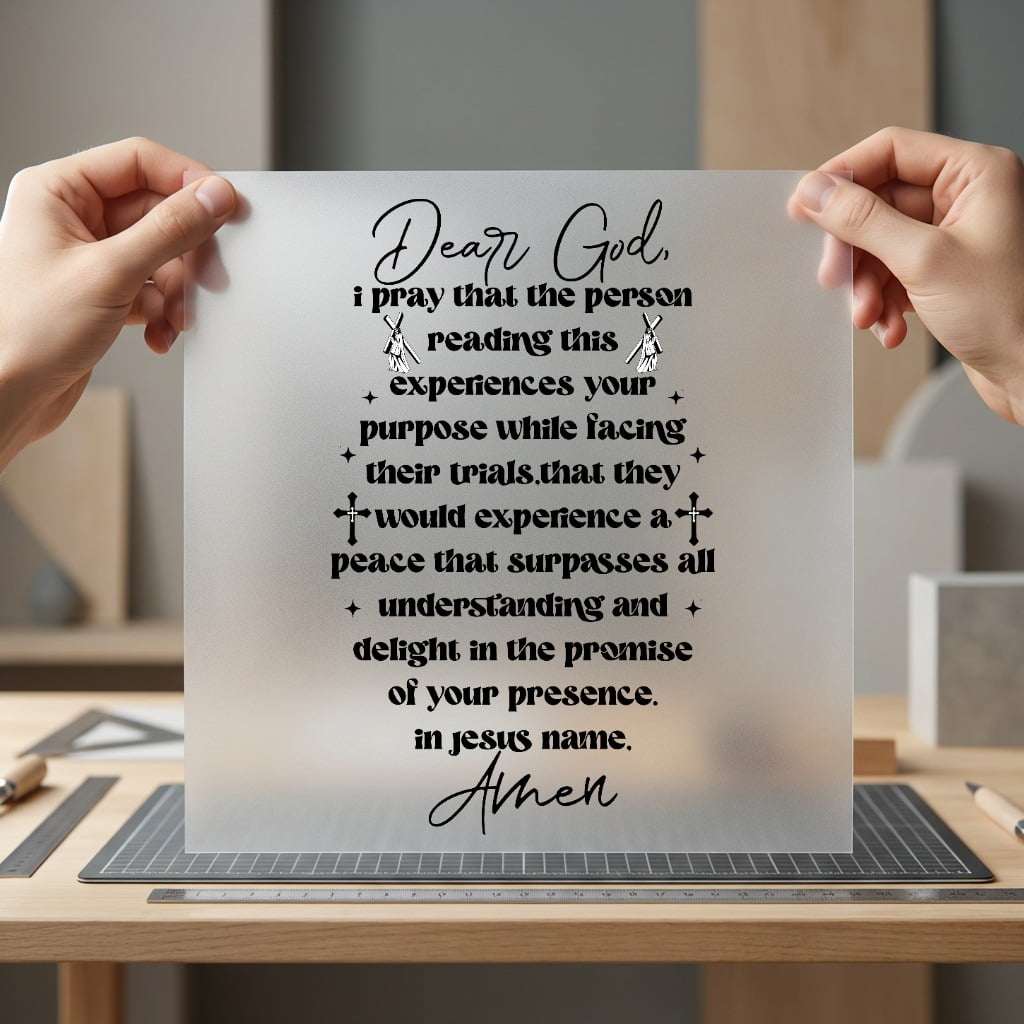 Dear God,
i pray that the person
reading this
experiences your
purpose while facing
their trials.that they
would experience a
peace that surpasses all
understanding and
delight in the promise
of your presence.
in jesus name.
Amen